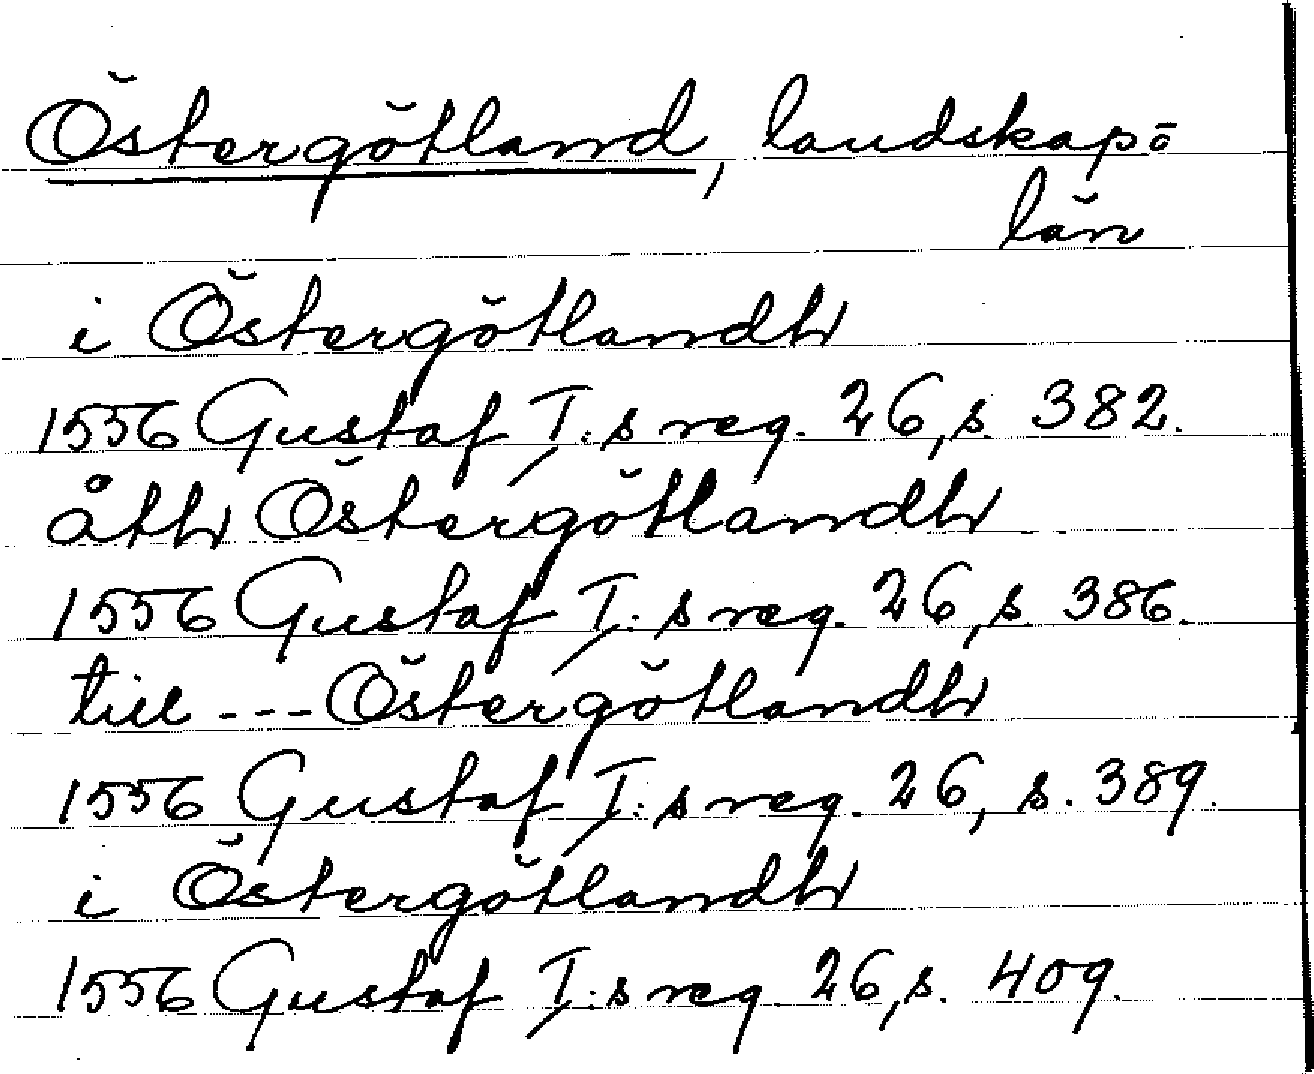 Östergötland, landskap o
län
i Östergötlandh
1556 Gustaf I:s reg. 26, s. 382.
åth Östergötlandh
1556 Gustaf I:s reg. 26, s 386.
till --- Östergötlandh
1556 Gustaf I:s reg. 26, s. 389.
i Östergötlandh
1556 Gustaf I:s reg. 26, s. 409.